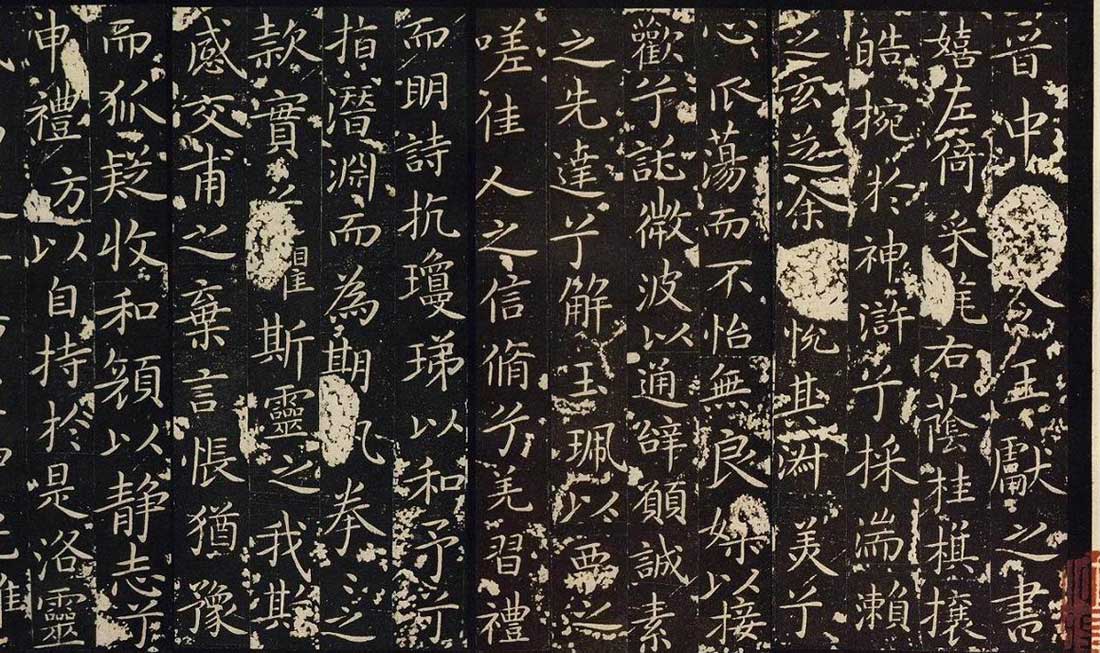 晋中令王獻之書
嬉左倚采旄右蔭桂旗攘
皓捥於神滸兮採湍瀨
之玄芝余悅其淑美兮
心振蕩而不怡無良媒以接
歡兮託微波以通辭願誠素
之先達兮解玉珮以要之
嗟佳人之信脩兮羌習禮
而明詩抗瓊珶以和予兮
指潛淵而為期執拳之
款實兮懼斯靈之我欺
感交甫之棄言悵猶豫
而狐疑收和顏以静志兮
申禮防以自持於是洛靈